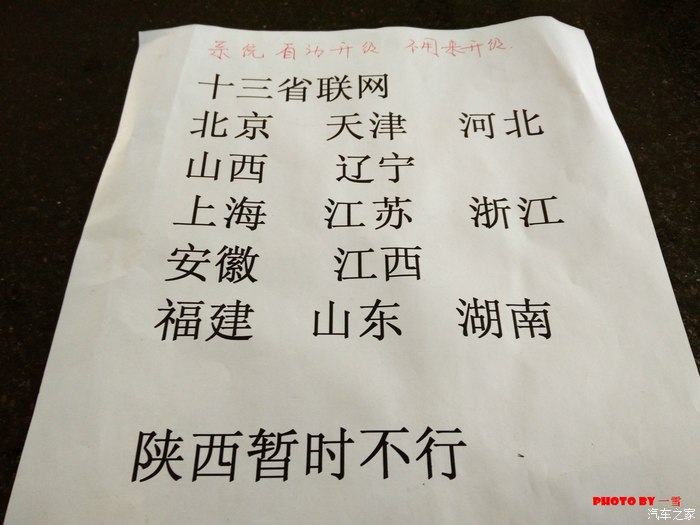 系统自动升级 不用来升级.
十三省联网
北京 天津 河北
山西 辽宁
上海 江苏 浙江
安徽 江西
福建 山东 湖南
陕西暂时不行
PHOTO BY 一雪
汽车之家